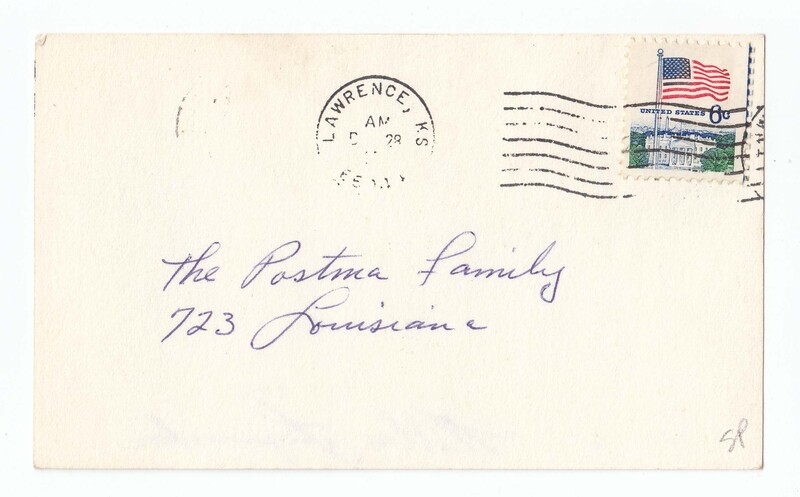 LAWRENCE, KS
AM
28
UNITED STATES 6c
The Postma Family
723 Louisiana